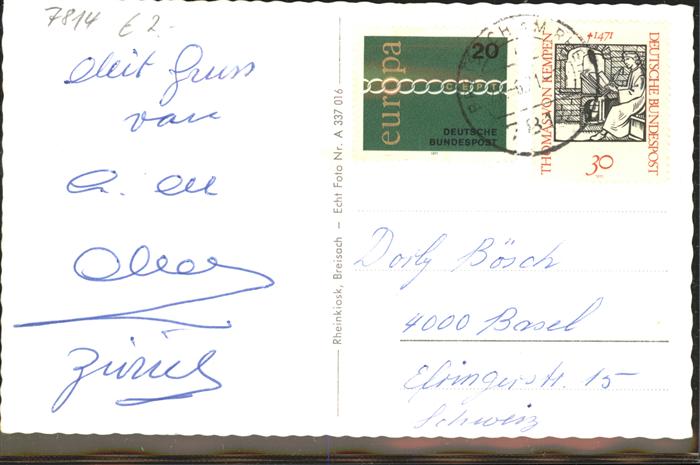 7814 € 2.-
Mit Gruss
von
Zürich
Rheinkiosk, Breisach – Echt Foto Nr. A 337 016
europa
20
CEPT
DEUTSCHE
BUNDESPOST
THOMAS VON KEMPEN
†1471
DEUTSCHE BUNDESPOST
30
AM RHEIN
Dorly Bösch
4000 Basel
Efringerstr. 15
Schweiz